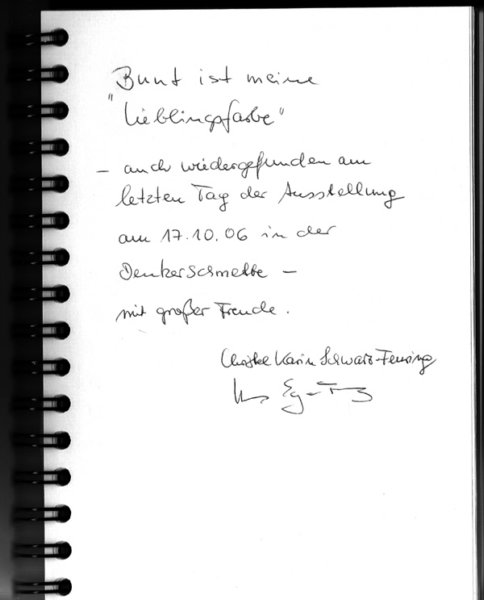 Bunt ist meine
"Lieblingsfarbe"
– auch wiedergefunden am
letzten Tag der Ausstellung
am 17.10.06 in der
Denkerschmette –
mit großer Freude.
Karin Schwarz-